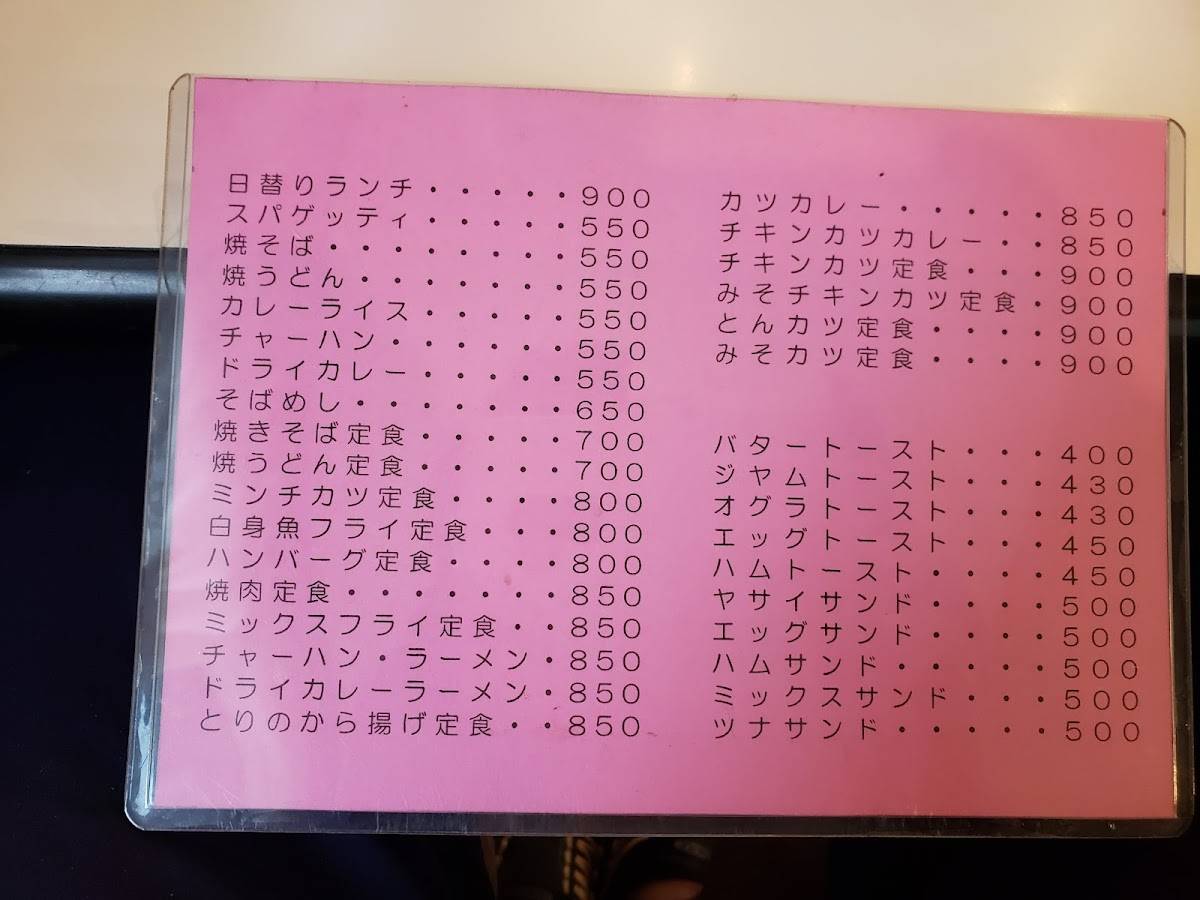 日替りランチ・・・・・900
スパゲッティ・・・・・550
焼そば・・・・・・・・550
焼うどん・・・・・・・550
カレーライス・・・・・550
チャーハン・・・・・・550
ドライカレー・・・・・550
そばめし・・・・・・・650
焼きそば定食・・・・・700
焼うどん定食・・・・・700
ミンチカツ定食・・・・800
白身魚フライ定食・・・800
ハンバーグ定食・・・・800
焼肉定食・・・・・・・850
ミックスフライ定食・・850
チャーハン・ラーメン・850
ドライカレーラーメン・850
とりのから揚げ定食・・850
カツカレー・・・・・850
チキンカツカレー・・850
チキンカツ定食・・・900
みそチキンカツ定食・900
とんカツ定食・・・・900
みそカツ定食・・・・900
バタートースト・・・400
ジヤムトースト・・・430
オグラトースト・・・430
エッグトースト・・・450
ハムトースト・・・・450
ヤサイサンド・・・・500
エッグサンド・・・・500
ハムサンド・・・・・500
ミックスサンド・・・500
ツナサンド・・・・・500